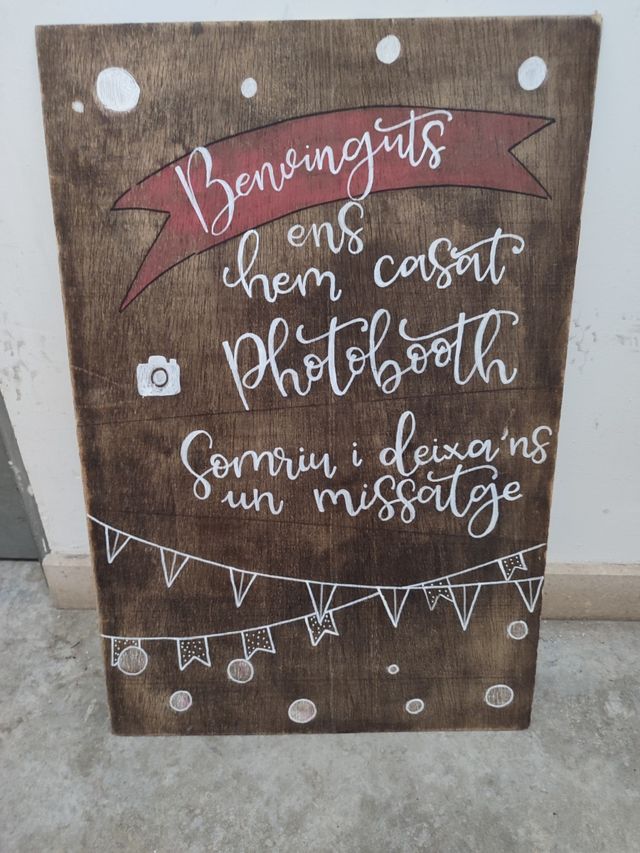 Benvinguts
ens
hem casat
Photobooth
Somriu i deixa'ns
un missatge